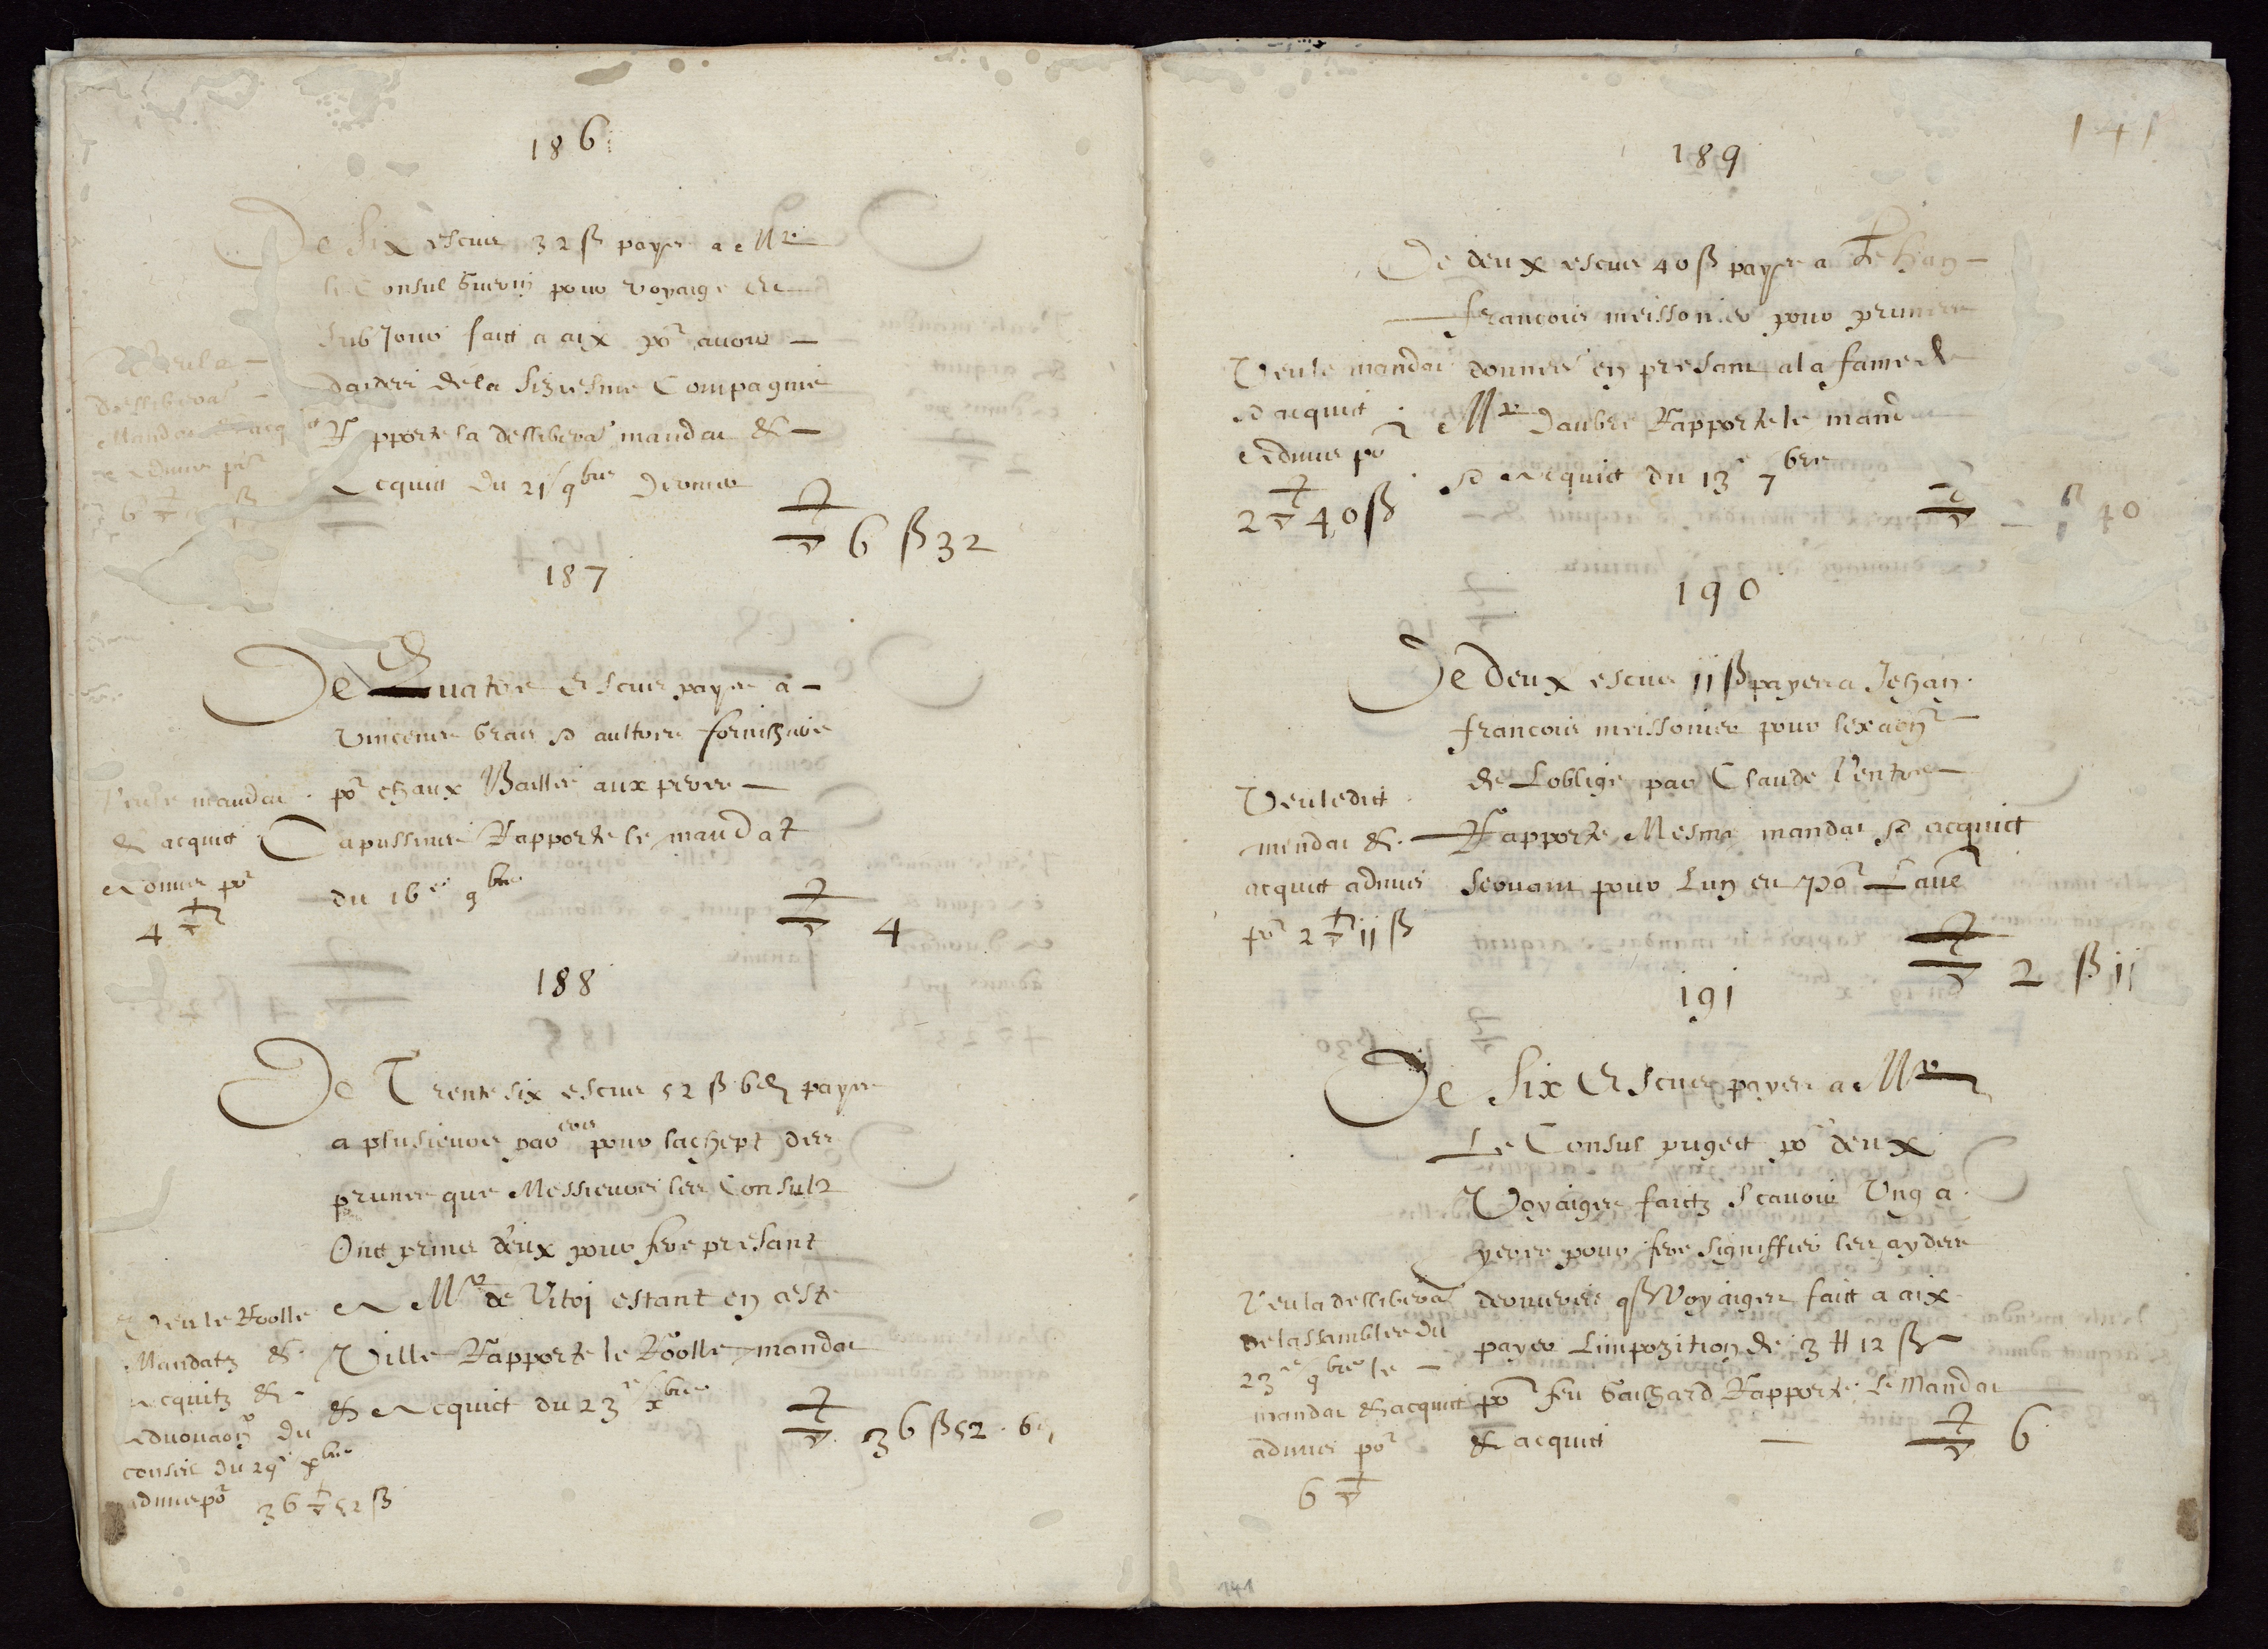 186
De Six escus 32 ß payes a Mr
le Consul Guerin pour voyaige et
subjour faict a aix por avoir
darders de la siziesme Compagnie
Rapporte la delliberaon mandat &
acquit du 21 9bre dernier
Veu la
delliberaon
Mandat & acq
admis por
6 ▽ 32 ß
▽ 6 ß 32
187
De Quatre Escus payes a
Vincens Gras et aultres
por chaux Baillee aux peres
Capussins Rapporte le mandat
du 16e 9bre
Veu le mandat
& acquit
Admis por
4 ▽
▽ 4
188
De Trente six escus 52 ß 6 d payes
a plusieurs parers pour lachept des
prunes que Messieurs les Consulz
Ont prins deux pour fere presant
A Mr de Vitri estant en ceste
Ville Rapporte le Roolle mandat
& Acquict du 23e xbre
Veu le Roolle
Mandatz &
Acquitz &
du
conseil du 29e xbre
admis por 36 ▽ 52 ß
▽ 36 ß 52 . 6 d
141
189
De deux escus 40 ß payes a Jehan
francois meissonier pour prunes
donnees en presant a la fame de
Mr Daubre Rapporte le mand
et Acquict du 13e 7bre
Veu le mandat
et acquit
Admis por
2 ▽ 40 ß
▽ 2 ß 40
190
De Deux escus 11 ß payes a Jehan
francois meissonier pour
de Loblige par Claude
Rapporte Mesme mandat et acquict
servant pour Lung et por Laue
Veu ledict
mendat &
acquit admis
por 2 ▽ 11 ß
▽ 2 ß 11
191
De Six Escus payes a Mr
Le Consul puget por deux
Voyaiges faictz scavoir Ung a
yeres pour fere signiffier les aydes
Voyaiges faict a aix
payer Limpozition de 3 ₶ 12 ß
por feu Gaichard Rapporte le Mandat
& acquit
Veu la delliberaon
de lassamblee du
23e 9bre le
mandat & acquit
admis por
6 ▽
▽ 6
141